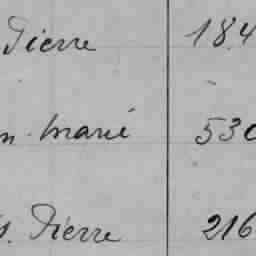 Pierre 184
n marié 530
s. Pierre 216